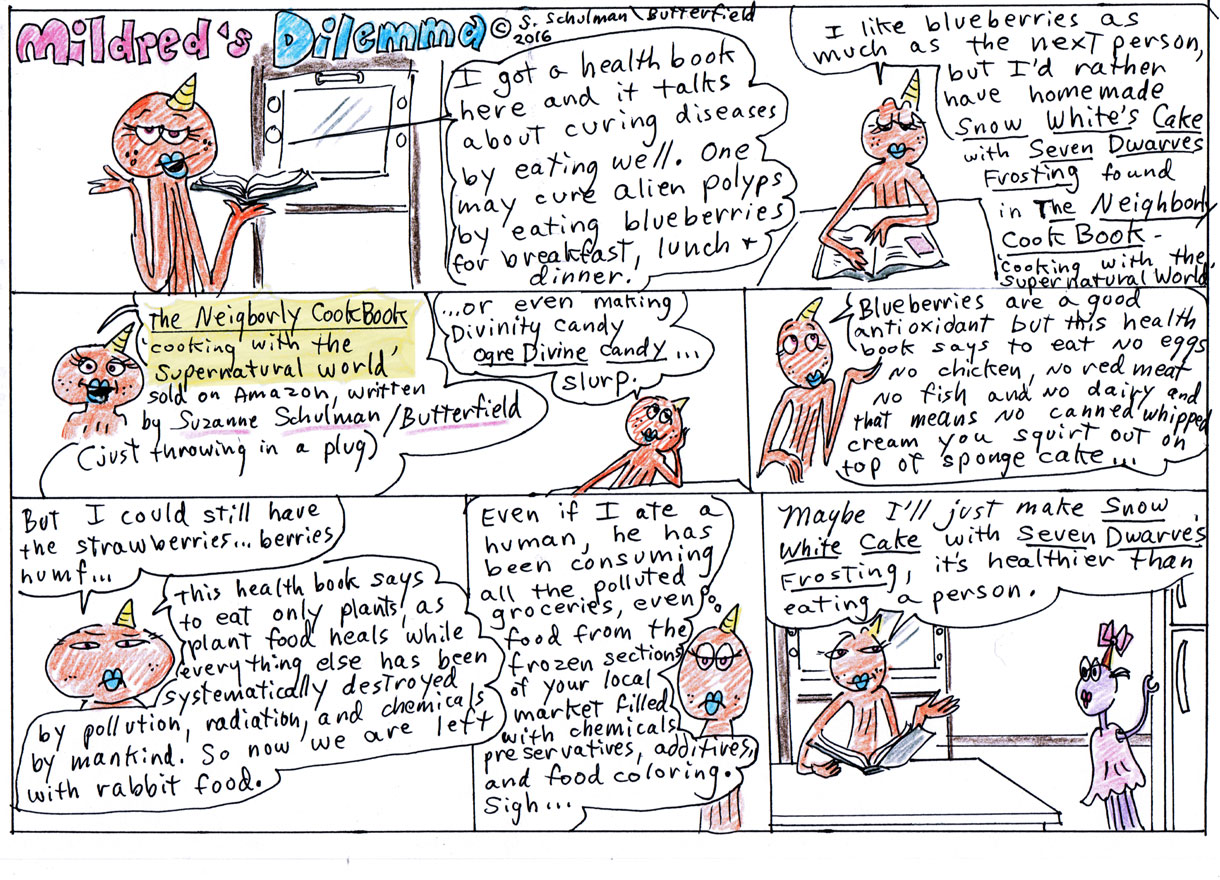 Mildred's Dilemma © S. Schulman\Butterfield
2016
I got a health book
here and it talks
about curing diseases
by eating well. One
may cure alien polyps
by eating blueberries
for breakfast, lunch +
dinner.
I like blueberries as
much as the next person,
but I'd rather
have homemade
Snow White's Cake
with Seven Dwarves
Frosting found
in The Neighborly
Cook Book -
'Cooking with the
Supernatural World
The Neigborly CookBook
'cooking with the
supernatural world'
sold on Amazon, written
by Suzanne Schulman/Butterfield
(just throwing in a plug)
...or even making
Divinity candy
ogre Divine Candy...
slurp.
Blueberries are a good
antioxidant but this health
book says to eat no eggs
no chicken, no red meat
no fish and no dairy and
that means no canned whipped
cream you squirt out on
top of sponge cake...
But I could still have
the strawberries... berries
humf...
This health book says
to eat only plants, as
plant food heals while
everything else has been
systematically destroyed
by pollution, radiation, and chemicals
by mankind. So now we are left
with rabbit food.
Even if I ate a
human, he has
been consuming
all the polluted
groceries, even
food from the
frozen sections
of your local
market filled
with chemicals,
preservatives, additives,
and food coloring.
Sigh...
Maybe I'll just make Snow
White Cake with Seven Dwarves
Frosting, it's healthier than
eating a person.